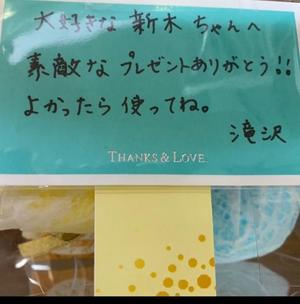 大好きな 新木 ちゃんへ
素敵な プレゼントありがとう!!
よかったら 使ってね。
滝沢
THANKS & LOVE.